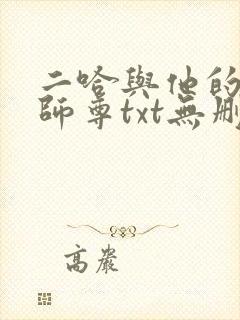 二哈與他的
師尊txt無刪
高嚴